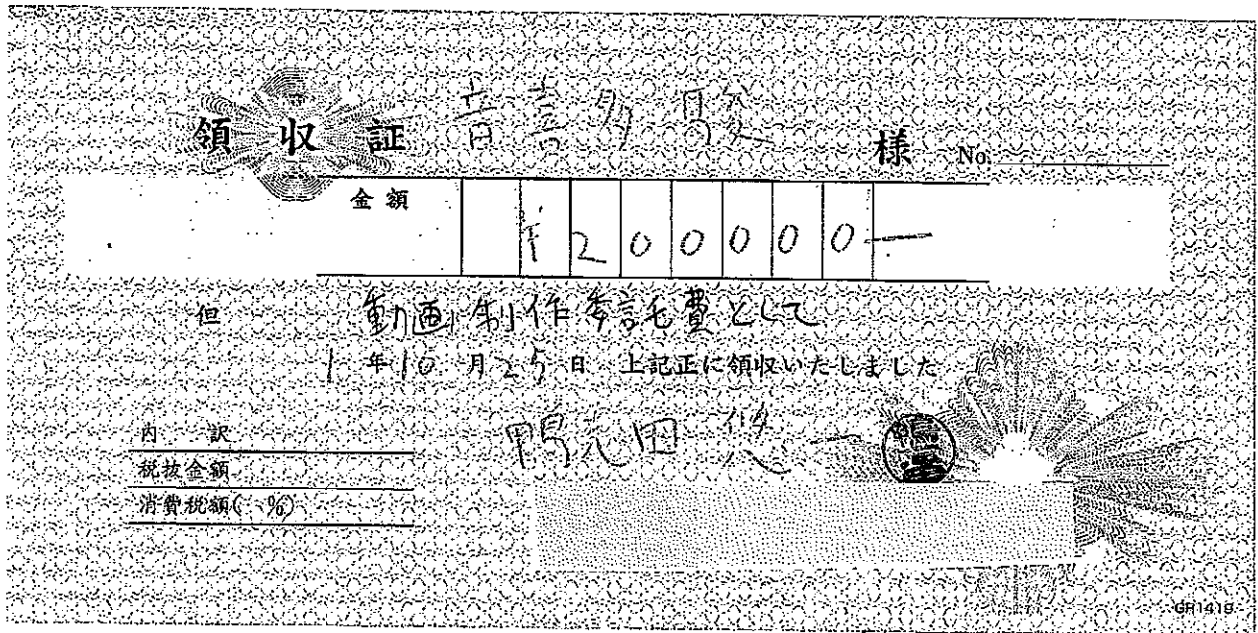 領収証 音喜多 駿 様 No.
金額 ¥200000-
但 動画制作委託費として
1年10月25日 上記正に領収いたしました
鴨志田 悠一
内訳
税抜金額
消費税額( %)
GR1419